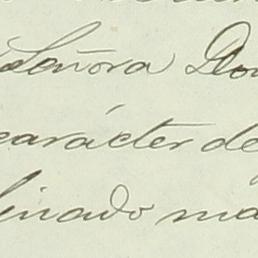 Señora Do
carácter de
inado ma